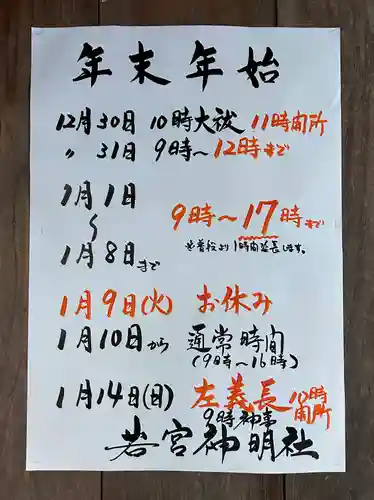 年末年始
12月30日 10時大祓 11時開所
〃 31日 9時〜12時まで
1月1日
〜
1月8日まで
9時〜17時まで
1時間延長します。
1月9日(火) お休み
1月10日から 通常時間
(9時〜16時)
1月14日(日) 左義長 10時開所
9時神事
若宮神明社